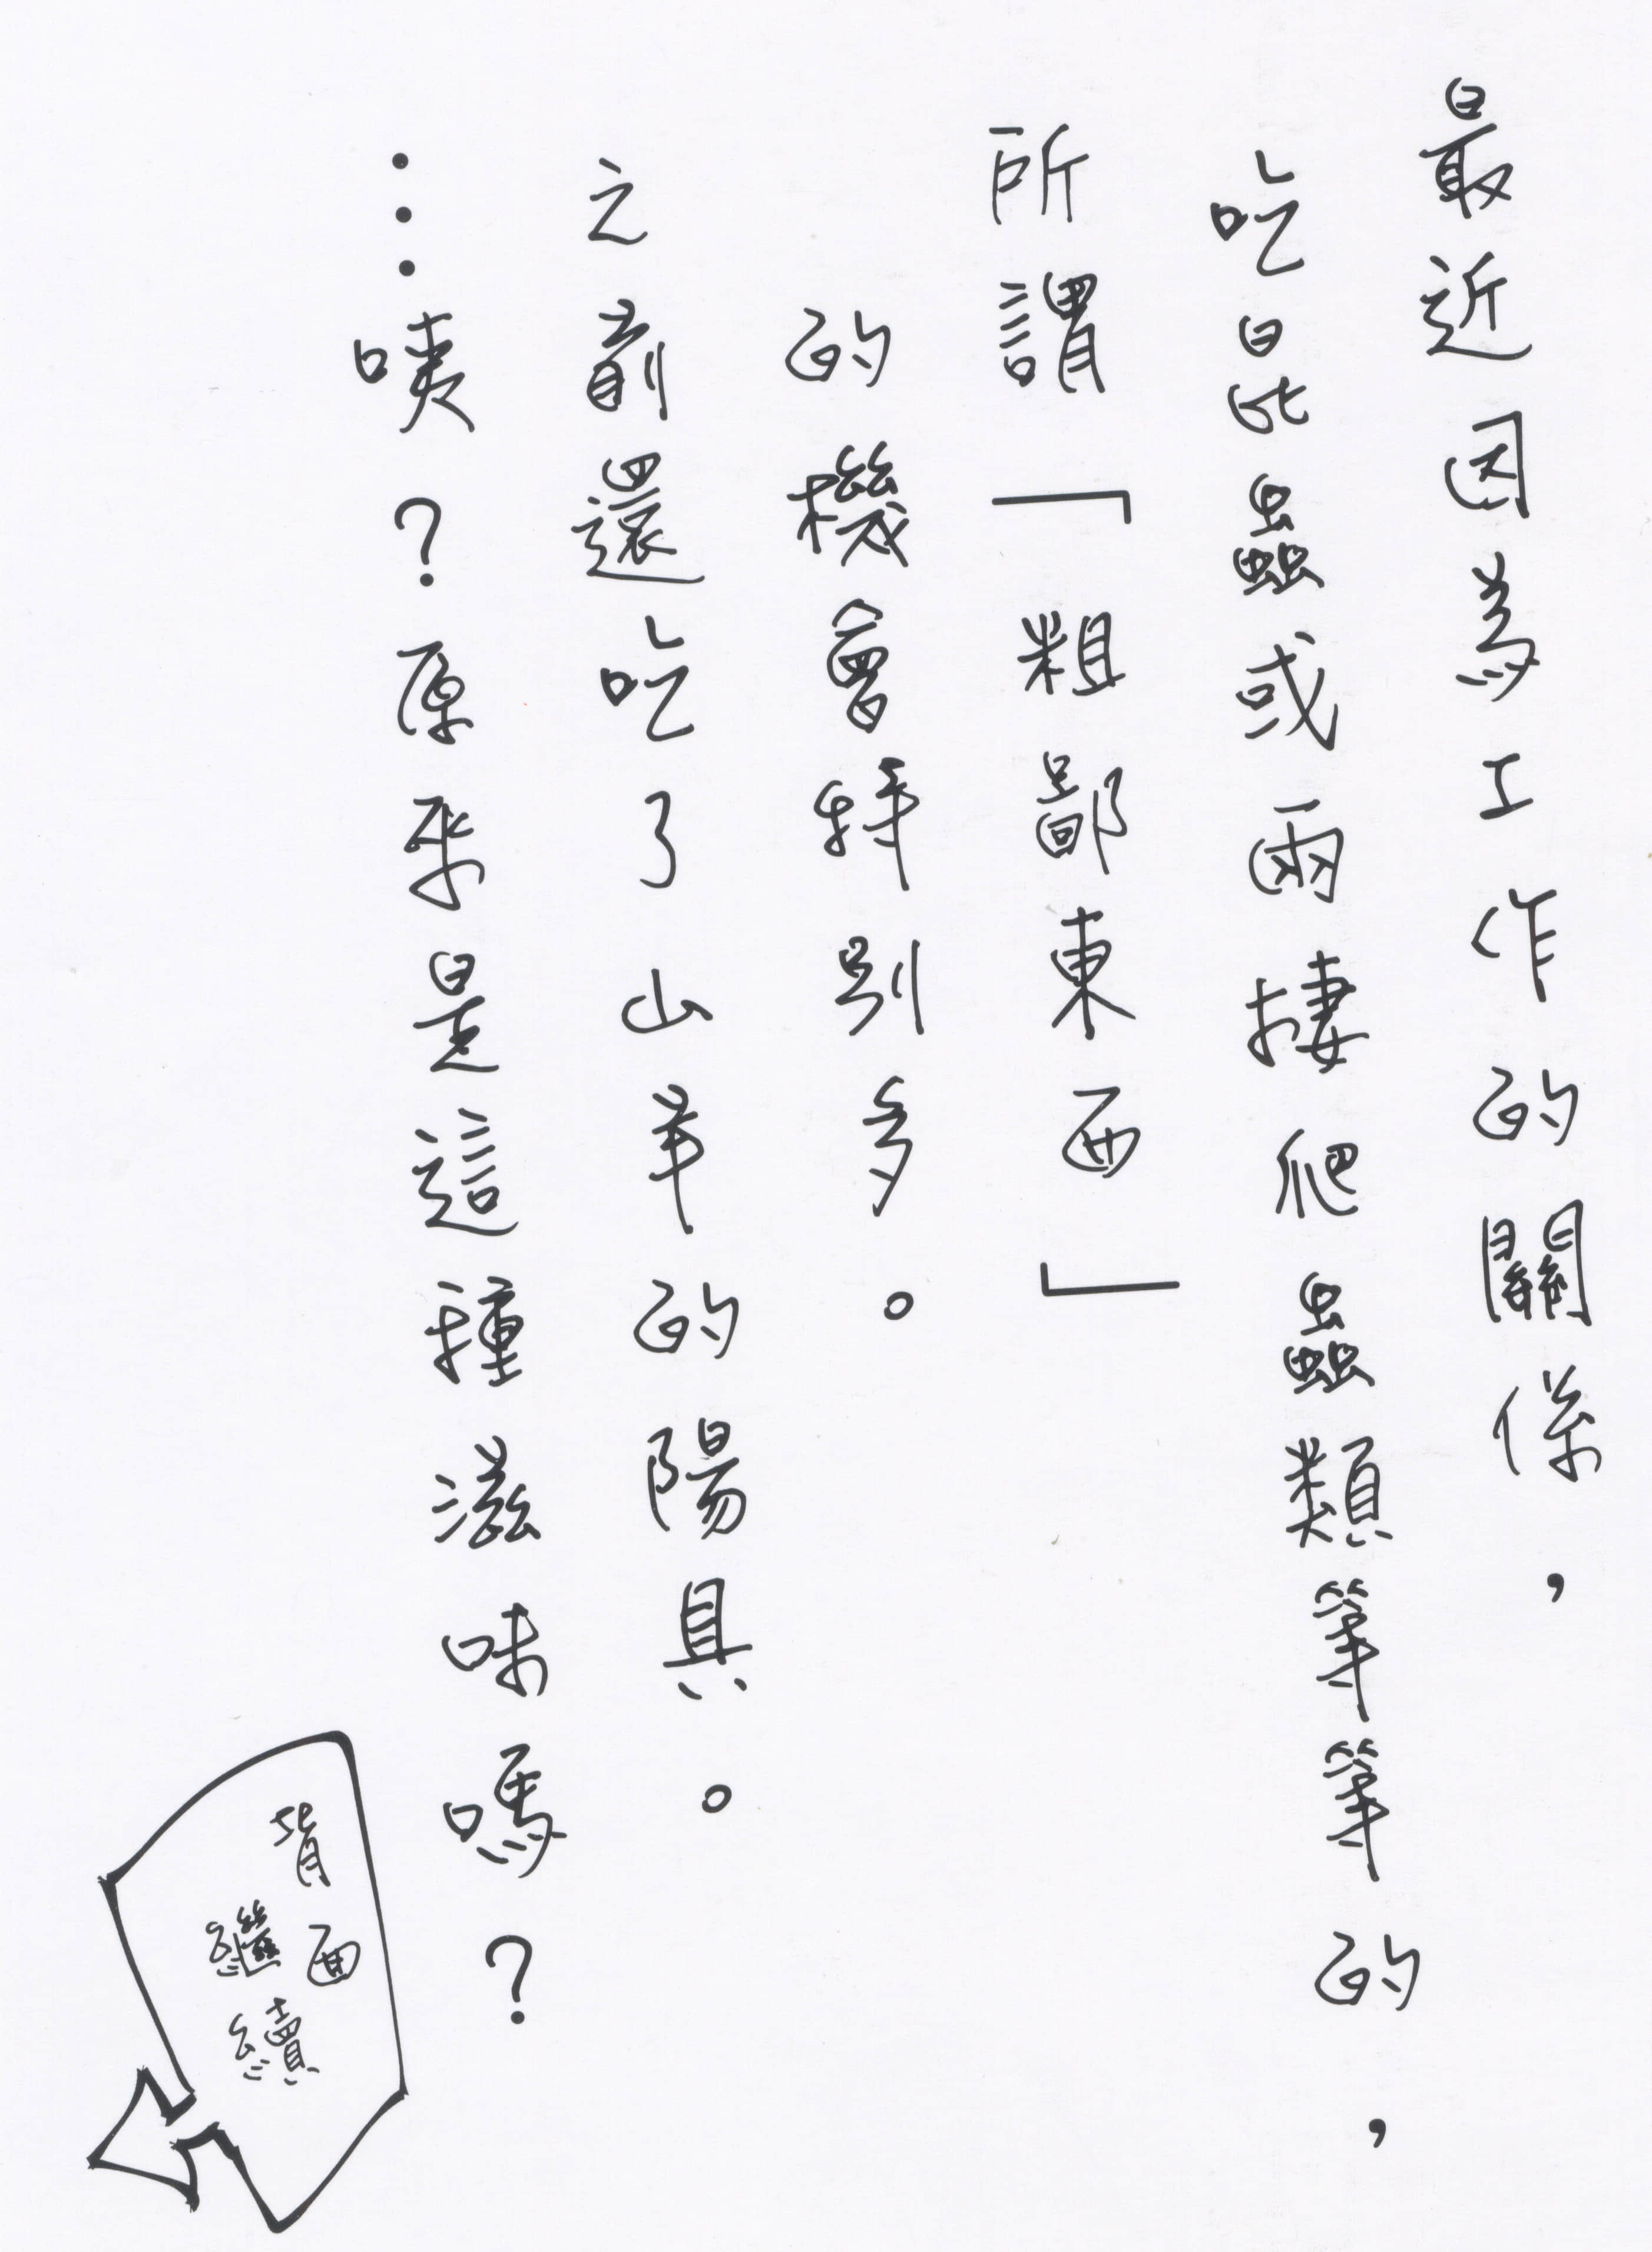 最近因為工作的關係，
吃昆蟲或兩捿爬蟲類等等的，
所謂「粗鄙東西」
的機會特別多。
之前還吃了山羊的陽具。
…咦？原來是這種滋味嗎？
背面
繼續